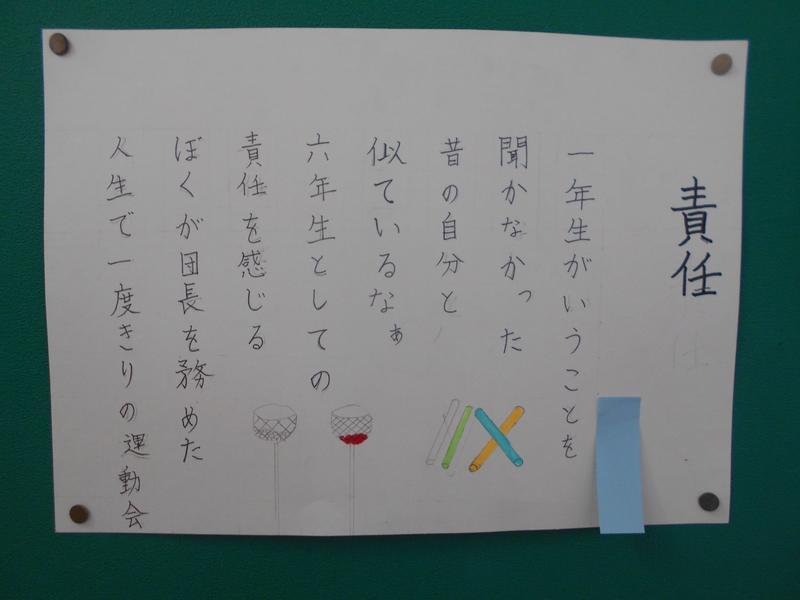 責任
一年生がいうことを
聞かなかった
昔の自分と
似ているなぁ
六年生としての
責任を感じる
ぼくが団長を務めた
人生で一度きりの運動会